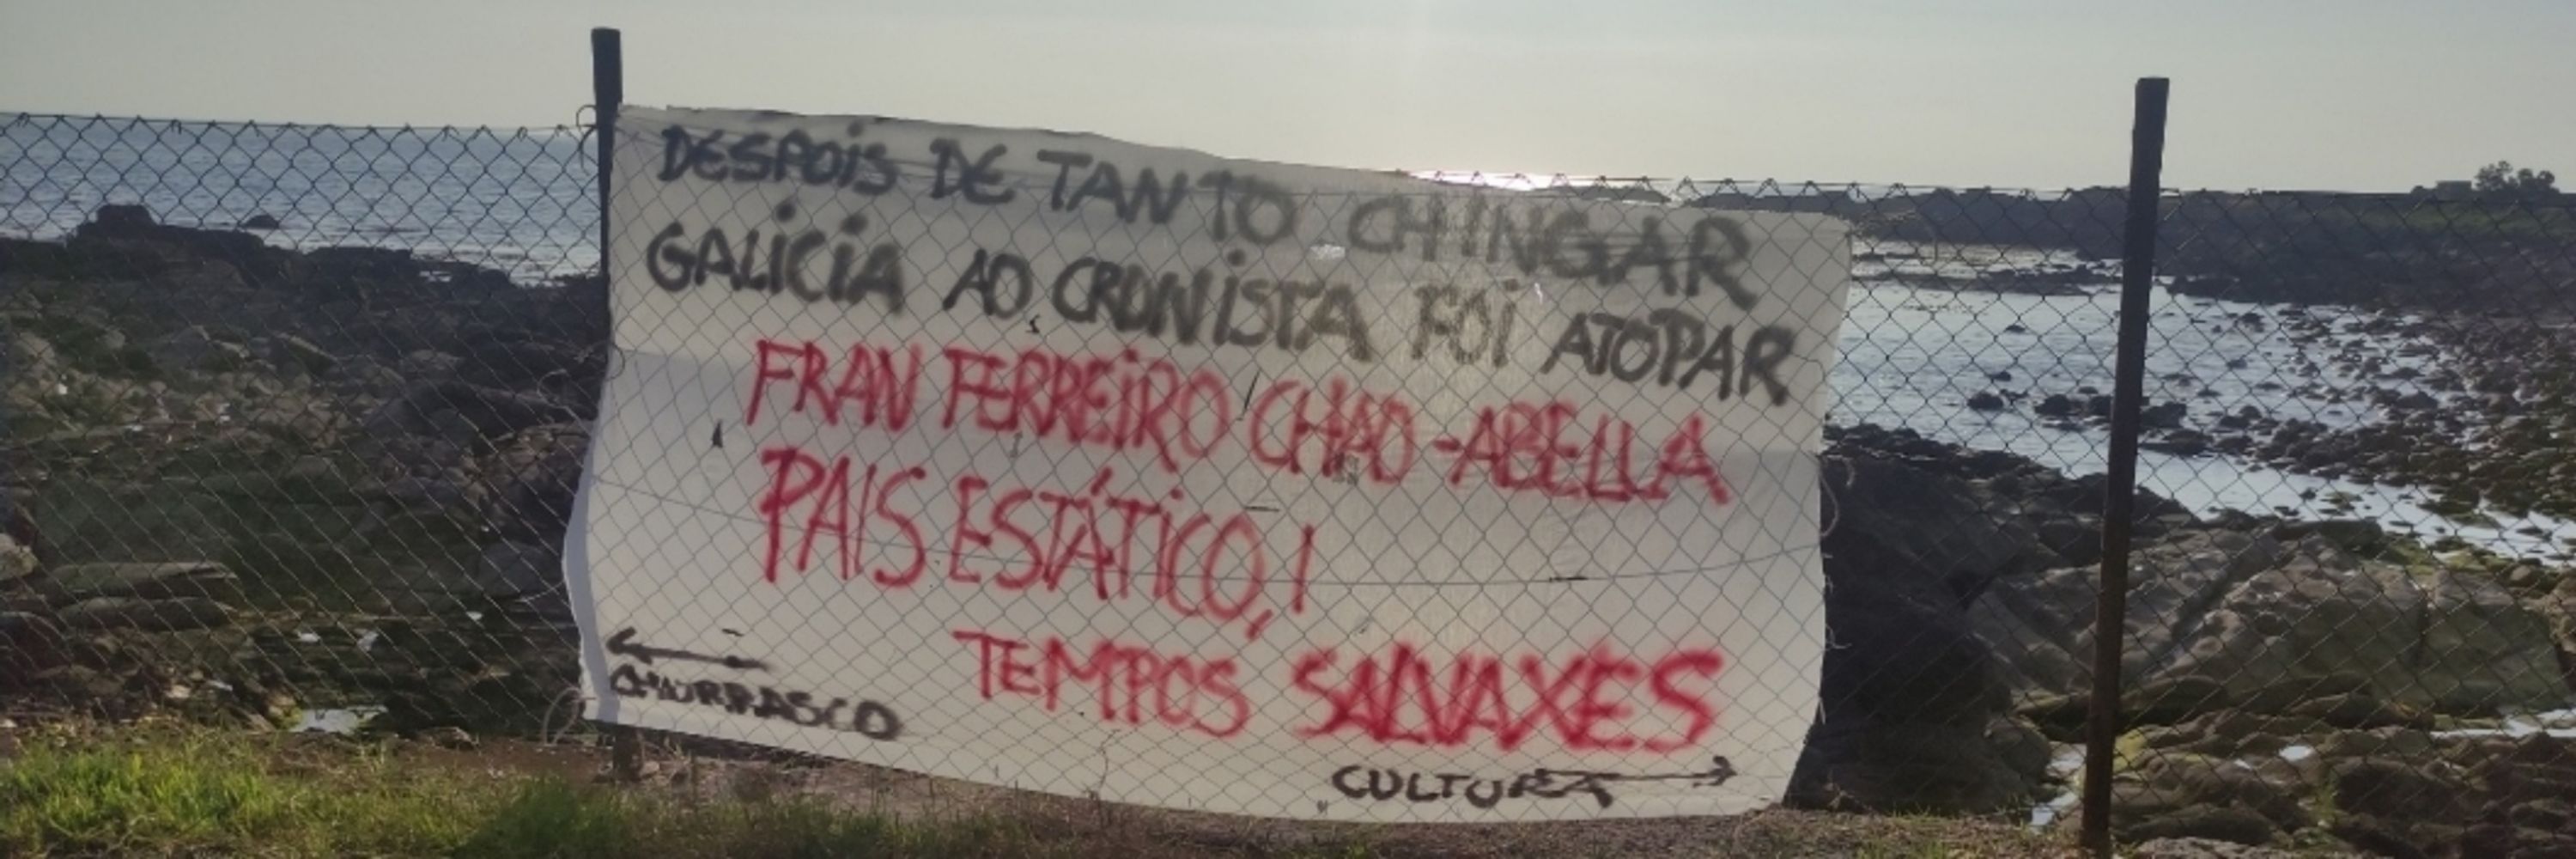 DESPOIS DE TANTO CHINGAR
GALICIA AO CRONISTA FOI ATOPAR
FRAN FERREIRO CHAO-ABELLA
PAIS ESTÁTICO,!
TEMPOS SALVAXES
CHURRASCO
CULTURA